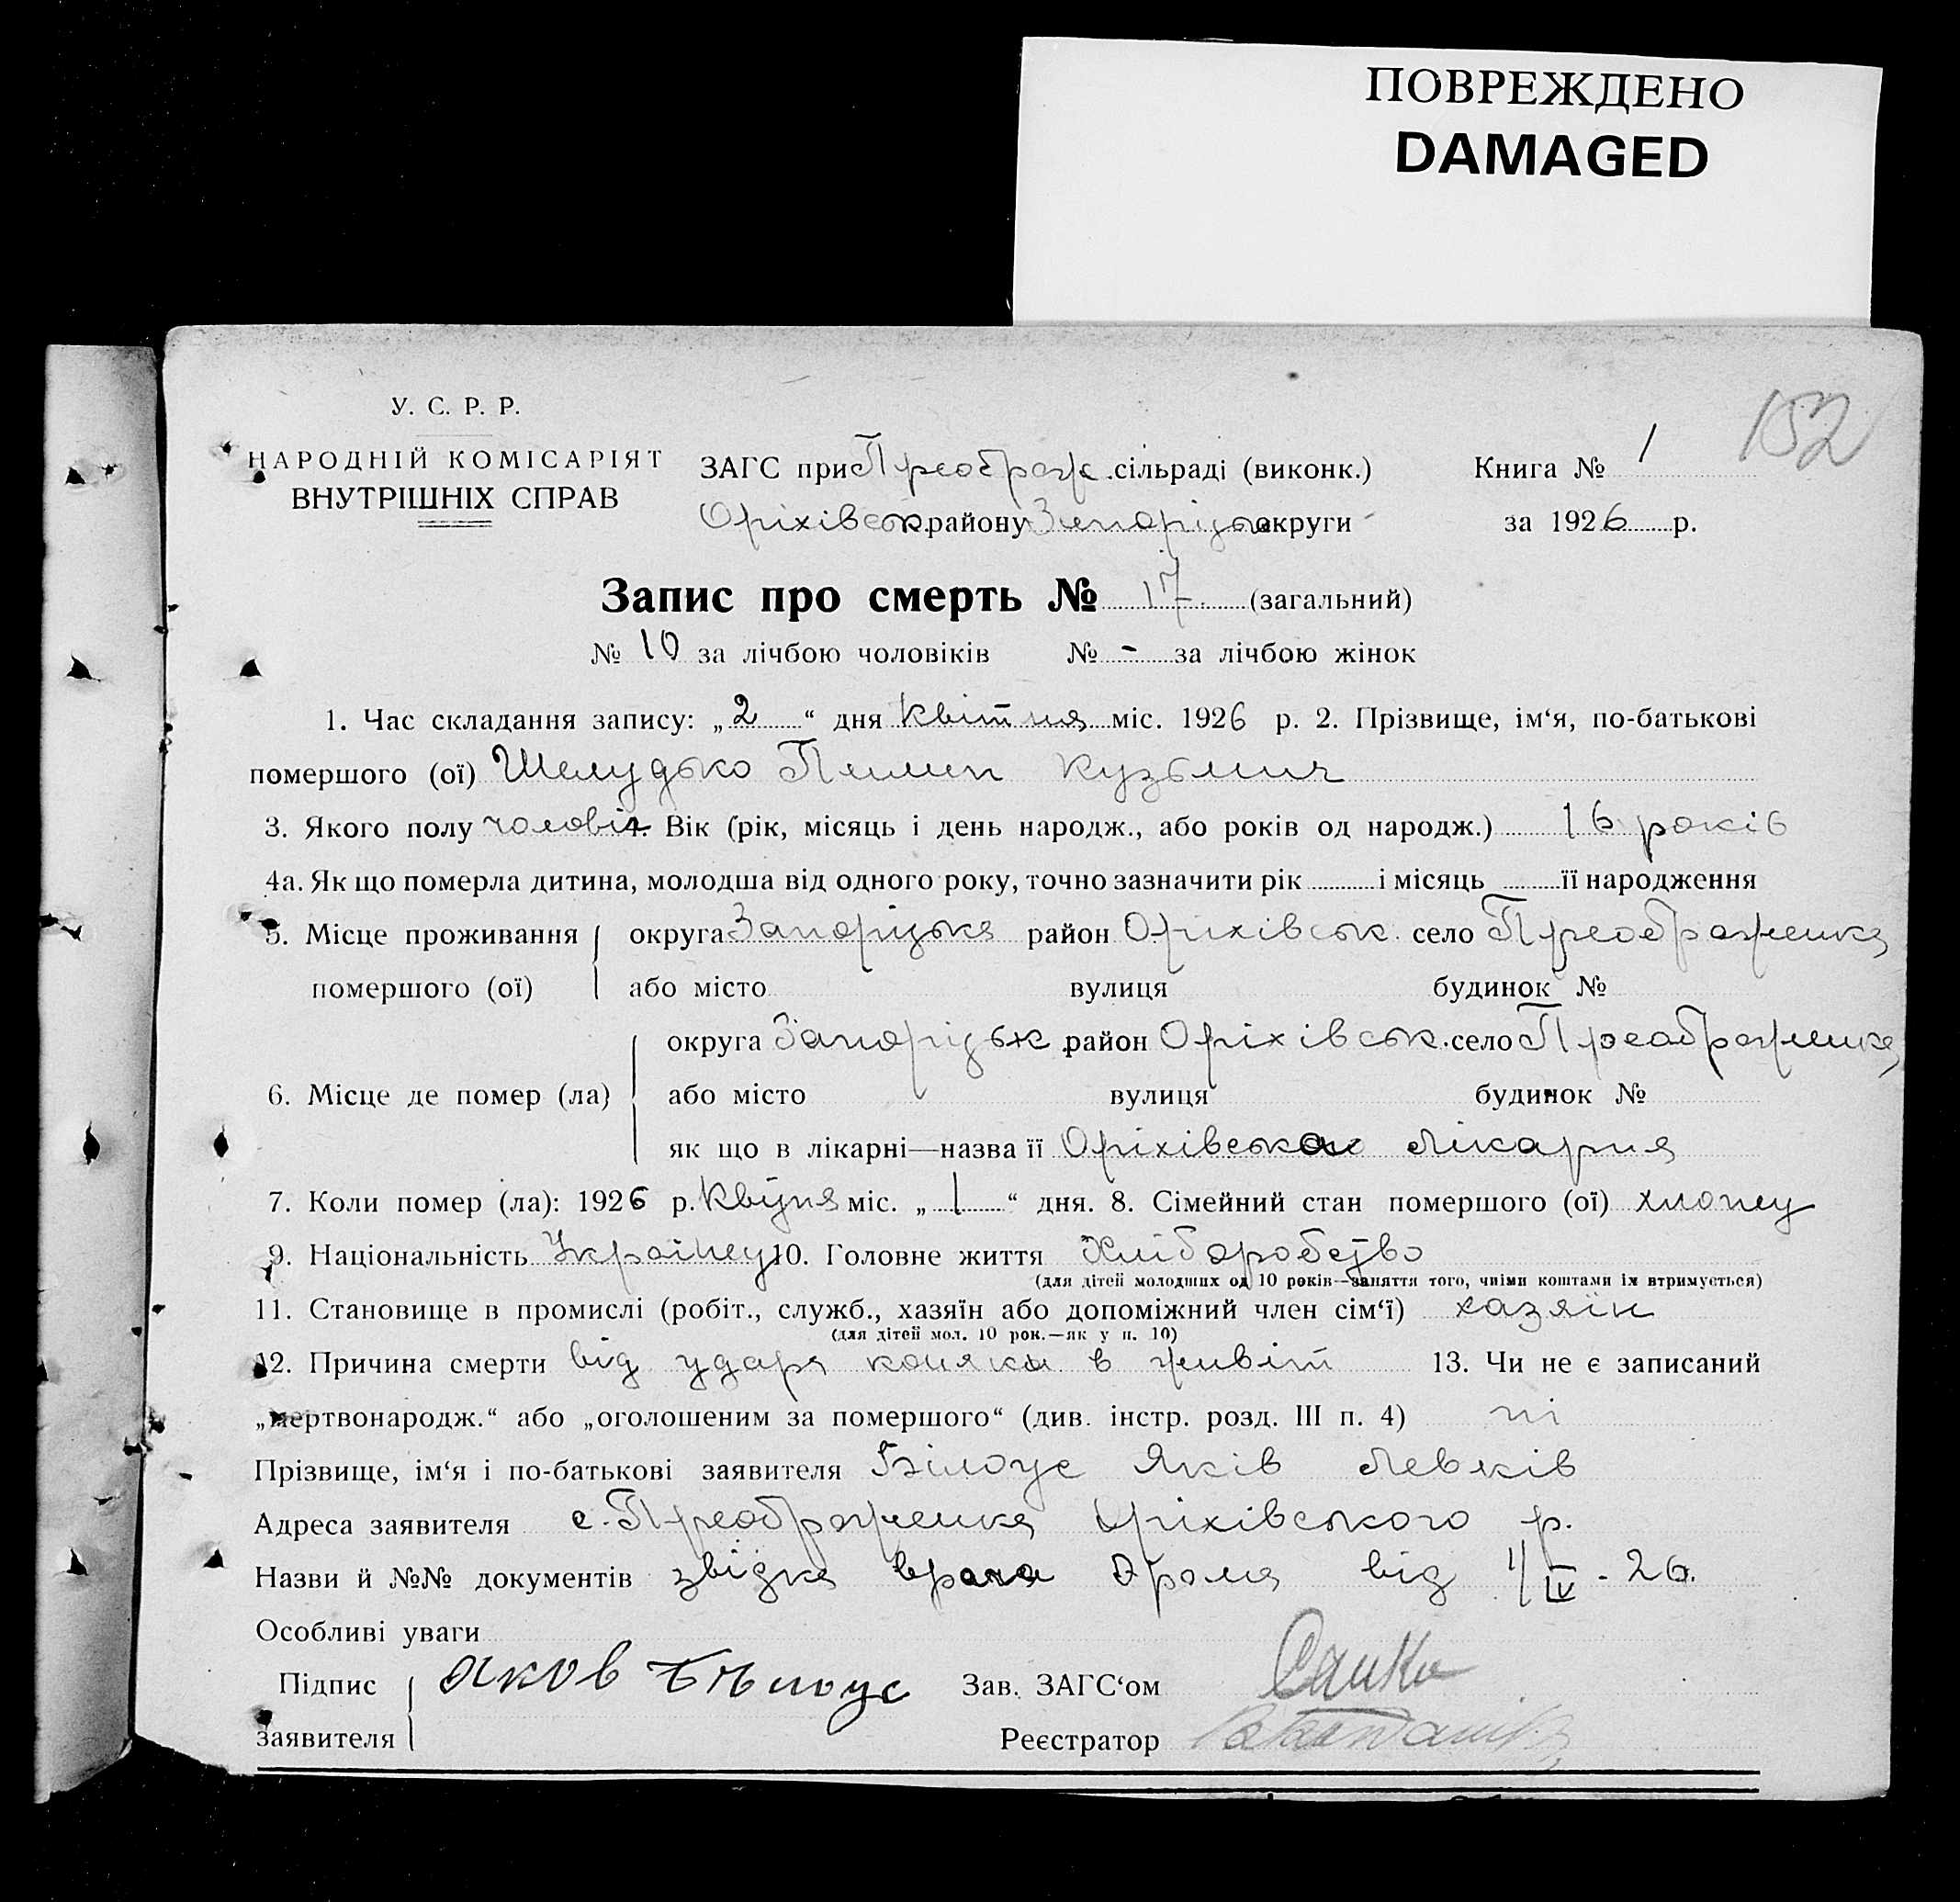 ПОВРЕЖДЕНО
DAMAGED
152
У. С. Р. Р.
НАРОДНІЙ КОМІСАРІЯТ
ВНУТРІШНІХ СПРАВ
ЗАГС при Преображ. сільраді (виконк.)
Оріхівськ. району Запорізьк округи
Книга № 1
за 1926 р.
Запис про смерть № 17 (загальний)
№ 10 за лічбою чоловіків № - за лічбою жінок
1. Час складання запису: „2“ дня квітня міс. 1926 р. 2. Прізвище, ім‘я, по-батькові
помершого (ої) Шелудько Пилип Кузьмич
3. Якого полу чоловіч. Вік (рік, місяць і день народж., або років од народж.) 16 років
4а. Як що померла дитина, молодша від одного року, точно зазначити рік і місяць її народження
5. Місце проживання округа Запорізька район Оріхівськ. село Преображенка
помершого (ої) або місто вулиця будинок №
округа Запорізьк район Оріхівськ. село Преображенка
6. Місце де помер (ла) або місто вулиця будинок №
як що в лікарні—назва її Оріхівська лікарня
7. Коли помер (ла): 1926 р. Квітня міс. „1“ дня. 8. Сімейний стан помершого (ої) хлопец
9. Національність Українец 10. Головне життя Хліборобство
(для дітей молодших од 10 років—заняття того, чиїми коштами їх втримується)
11. Становище в промислі (робіт., служб., хазяїн або допоміжний член сім‘ї) хазяїн
(для дітей мол. 10 рок.—як у п. 10)
12. Причина смерти від удара коняки в живіт 13. Чи не є записаний
„мертвонародж.“ або „оголошеним за помершого“ (див. інстр. розд. III п. 4) ні
Прізвище, ім‘я і по-батькові заявителя Білоус Яків Левків
Адреса заявителя с. Преображенка Оріхівського р.
Назви й №№ документів звідка врача від 1/IV - 26.
Особливі уваги
Підпис Яков Бѣлоус Зав. ЗАГС‘ом
заявителя Реєстратор